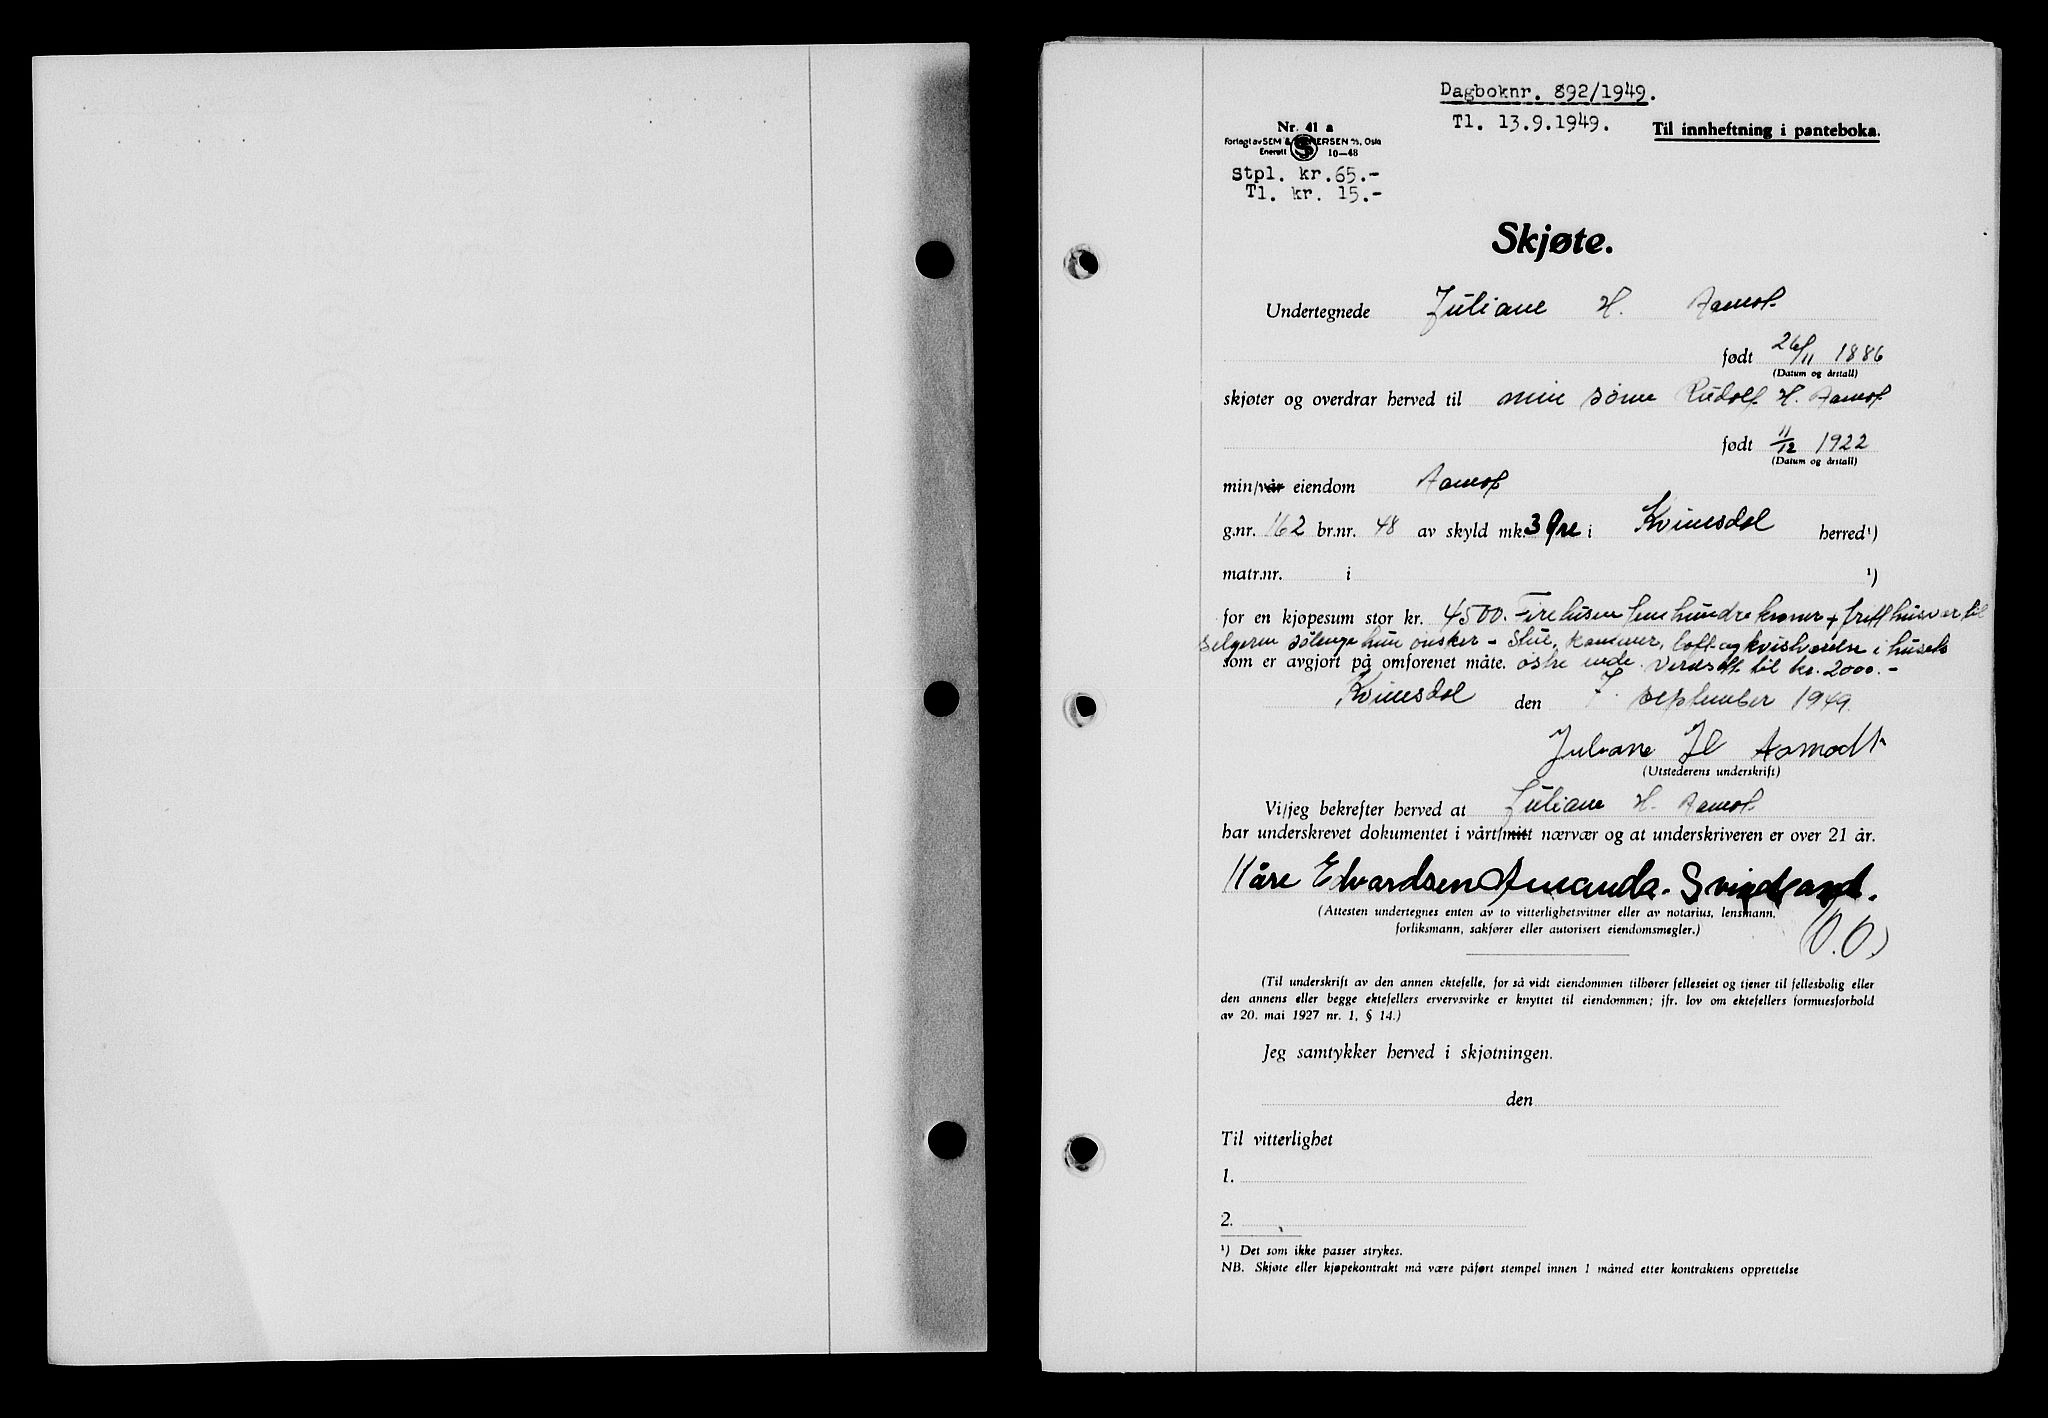 Dagboknr. 892/1949.
Tl. 13.9.1949.
Til innheftning i panteboka.
Nr. 41 a
Forlagt av SEM & STENERSEN A/S, Oslo
Enerett 10—48
Stpl. kr. 65.-
Tl. kr. 15.-
Skjøte.
Undertegnede Juliane H. Aamot
født 26/11 1886
(Datum og årstall)
skjøter og overdrar herved til min sønn Rudolf H. Aamot
født 11/12 1922
(Datum og årstall)
min/vår eiendom Aamot
g.nr. 162 br.nr. 48 av skyld mk. 3 Øre i Kvinesdal herred¹)
matr.nr. i ¹)
for en kjøpesum stor kr. 4500. Firetusen femhundre kroner + fritt husvær til
selgeren sålenge hun ønsker - Stue, kammer, loft og kvistværelse i husets
som er avgjort på omforenet måte. østre ende. Verdsatt til kr. 2000.-
Kvinesdal den 7. september 1949.
Juliane H Aamodt
(Utstederens underskrift)
Vi/jeg bekrefter herved at Juliane H. Aamot
har underskrevet dokumentet i vårt/mitt nærvær og at underskriveren er over 21 år.
Kåre Edvardsen Amanda Svindland.
(Attesten undertegnes enten av to vitterlighetsvitner eller av notarius, lensmann,
forliksmann, sakfører eller autorisert eiendomsmegler.)
(Til underskrift av den annen ektefelle, for så vidt eiendommen tilhører felleseiet og tjener til fellesbolig eller
den annens eller begge ektefellers ervervsvirke er knyttet til eiendommen; jfr. lov om ektefellers formuesforhold
av 20. mai 1927 nr. 1, § 14.)
Jeg samtykker herved i skjøtningen.
den
Til vitterlighet
1.
2.
¹) Det som ikke passer strykes.
NB. Skjøte eller kjøpekontrakt må være påført stempel innen 1 måned etter kontraktens opprettelse